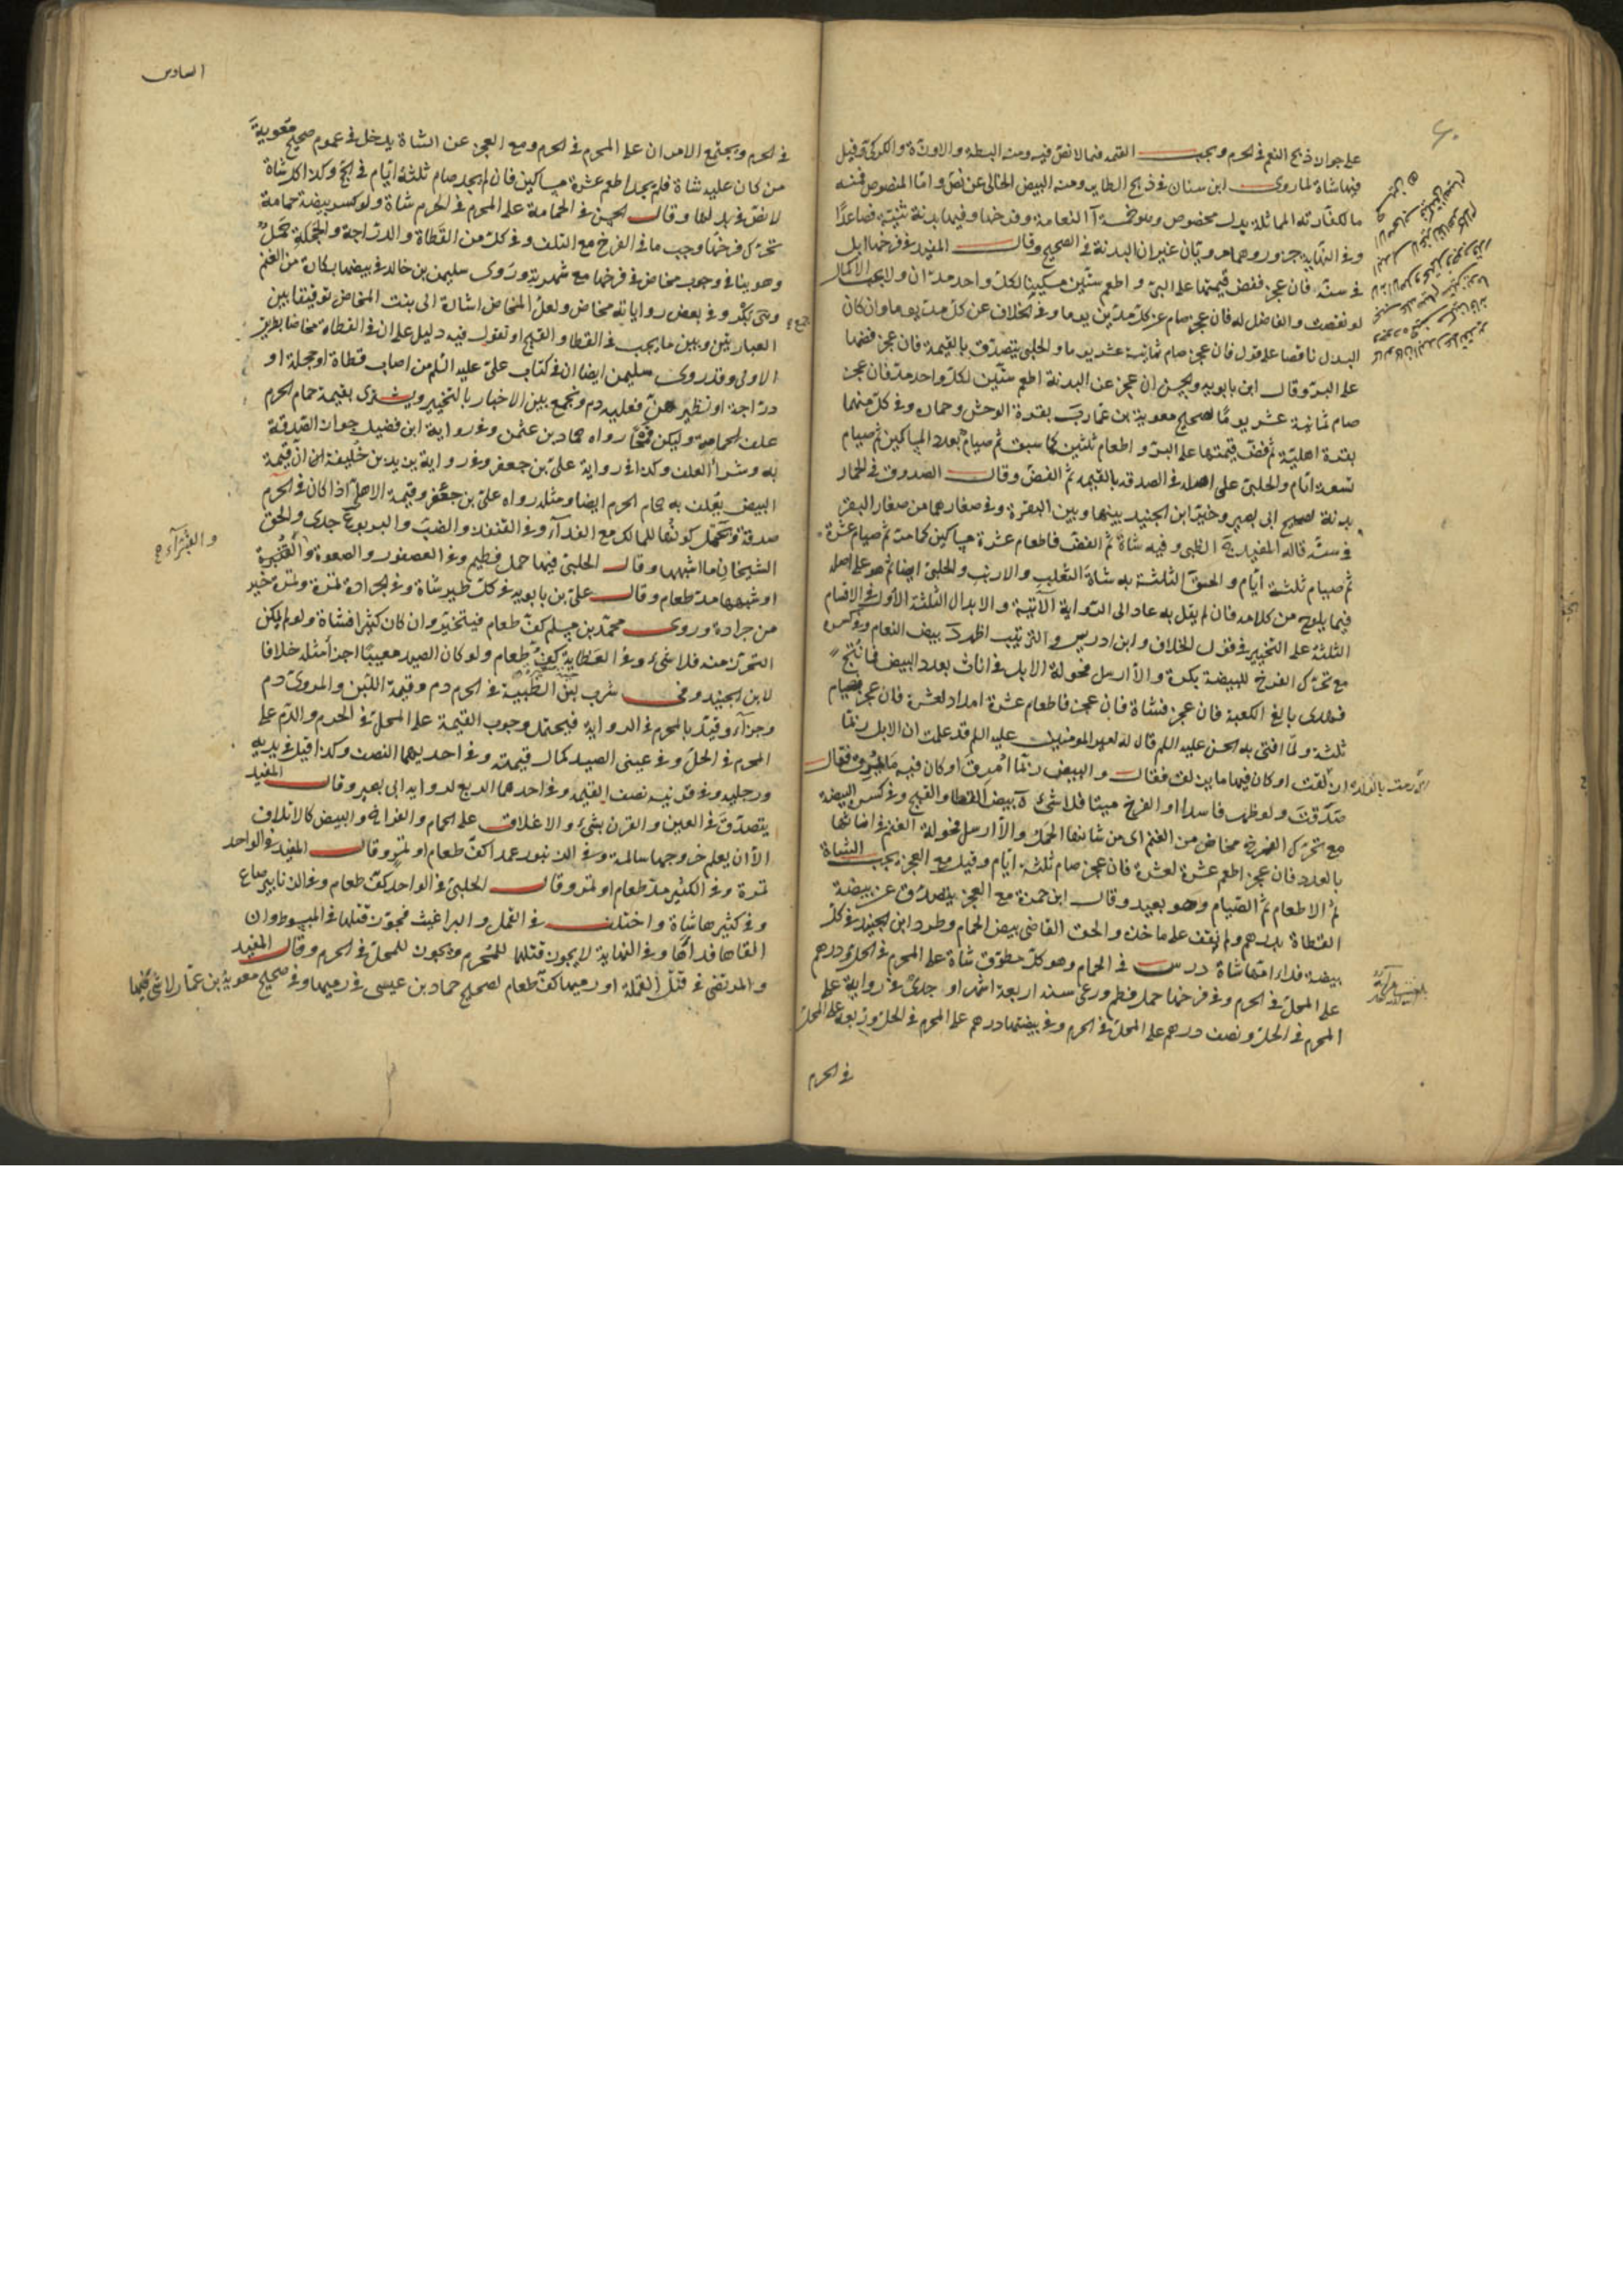 على جواز ذبح النعم في الحرم ويجب القيمة فيما لا نص فيه ومنه البطة والاوزة والكركي وقيل
فيها شاة لما روى ابن سنان في ذبح الطاير ومنه البيض الخالي عن نص واما المنصوص فمنه
ما لكفارته المماثلة بدل مخصوص وهو خمسة آ النعامة وفرخها وفيها بدنة ثنية فصاعدا
وفي النهاية جزور وهما مرويتان غير ان البدنة في الصحيح وقال المفيد في فرخها ابل
في سنه فان عجز فض قيمتها على البر واطعم ستين مسكينا لكل واحد مدان ولا يجب الاكمال
لو نقصت والفاضل له فان عجز صام عن كل مدين يوما وفي الخلاف عن كل مد يوما وان كان
البدل ناقصا على قول فان عجز صام ثمانية عشر يوما والحلبي يتصدق بالقيمة فان عجز فضها
على البر وقال ابن بابويه والحسن ان عجز عن البدنة اطعم ستين لكل واحد مد فان عجز
صام ثمانية عشر يوما لصحيح معوية بن عمار ب بقرة الوحش وحماره وفي كل منهما
بقرة اهلية ثم فض قيمتها على البر واطعام ثلثين كما سبق ثم صيام بعدد المساكين ثم صيام
تسعة ايام والحلبي على اصله في الصدقة بالقيمة ثم الفض وقال الصدوق في الحمار
بدنة لصحيح ابي بصير وخير ابن الجنيد بينها وبين البقرة وفي صغارهما من صغار البقر
في سنه قاله المفيد ج الظبي وفيه شاة ثم الفض فاطعام عشرة مساكين كما مر ثم صيام عشرة
ثم صيام ثلثة ايام والحق الثلثة به شاة الثعلب والارنب والحلبي ايضا ثم هو على اصله
فيما يلوح من كلامه فان لم يقل به عاد الى الرواية الآتية والابدال الثلثة الأول في الاقسام
الثلثة على التخيير في قول الخلاف وابن ادريس والترتيب اظهر د بيض النعام وفي كسره
مع تحرك الفرخ للبيضة بكرة والا ارسل فحولة الابل في اناث بعدد البيض فما نتج
فهدى بالغ الكعبة فان عجز فشاة فان عجز فاطعام عشرة امداد لعشرة فان عجز فصيام
ثلثة ولما افتى به الحسن عليه السلم قال له امير المومنين عليه السلم قد علمت ان الابل ربما
ازلقت او كان فيها ما يزلق فقال والبيض ربما امرق او كان فيه ما يمرق فقال
صدقت ولو ظهر فاسدا او الفرخ ميتا فلا شئ ه بيض القطا والقبج وفي كسر البيضة
مع تحرك الفرخ مخاض من الغنم اى من شانها الحمل والا ارسل فحولة الغنم في اناثها
بالعدد فان عجز اطعم عشرة لعشرة فان عجز صام ثلثة ايام وقيل مع العجز يجب الشاة
ثم الاطعام ثم الصيام وهو بعيد وقال ابن حمزة مع العجز يتصدق عن بيضة
القطاة بدرهم ولم نقف على ماخذه والحق القاضي بيض الحمام وطرد ابن الجنيد في كل
بيضة فداء امها شاة درس في الحمام وهو كل مطوق شاة على المحرم في الحل ودرهم
على المحل في الحرم وفي فرخها حمل فطم ورعى سنه اربعة اشهر او جدى وفي رواية على
المحرم في الحل ونصف درهم على المحل في الحرم وفي بيضتها درهم على المحرم في الحل وربعه على المحل
في الحرم
السادس
في الحرم ويجتمع الامران على المحرم في الحرم ومع العجز عن الشاة يدخل في عموم صحيح معوية
من كان عليه شاة فلم يجد اطعم عشرة مساكين فان لم يجد صام ثلثة ايام في الحج وكذا كل شاة
لا نص في بدلها وقال الحسن في الحمامة على المحرم في الحرم شاة ولو كسر بيضة حمامة
تحرك فرخها وجب ما في الفرخ مع التلف وفي كل من القطاة والدراجة والحجلة حمل
وهو ينافي وجوب مخاض في فرخها مع شهرته وروى سليمن بن خالد في بيضها بكارة من الغنم
وهي بكر وفي بعض رواياته مخاض ولعل المخاض اشارة الى بنت المخاض توفيقا بين
العبارتين وبين ما يجب في القطا والقبج او نقول فيه دليل على ان في القطاة مخاضا بطريق
الاولى وقد روى سليمن ايضا ان في كتاب علي عليه السلم من اصاب قطاة او حجلة او
دراجة او نظيرهن فعليه دم ونجمع بين الاخبار بالتخيير ويشترى بقيمة حمام الحرم
علف لحمامه وليكن قمحا رواه حماد بن عثمن وفي رواية ابن فضيل جواز الصدقة
به وشرا العلف وكذا في رواية علي بن جعفر وفي رواية يزيد بن خليفة ان قيمة
البيض يعلف به حمام الحرم ايضا ومثله رواه علي بن جعفر وقيمة الاهلي اذا كان في الحرم
صدقة ويحتمل كونها للمالك مع الفدآء وفي القنفذ والضب واليربوع جدى والحق
الشيخان ما اشبهها وقال الحلبي فيها حمل فطيم وفي العصفور والصعوة والقبرة
او شبهها مد طعام وقال علي بن بابويه في كل طير شاة وفي الجرادة تمرة وتمرة خير
من جرادة وروى محمد بن مسلم كف طعام فيتخير وان كان كثيرا فشاة ولو لم يمكن
التحرز منه فلا شئ وفي العظاية كف طعام ولو كان الصيد معيبا اجزأ مثله خلافا
لابن الجنيد وفي شرب لبن الظبية في الحرم دم وقيمة اللبن والمروى دم
وجزآء وقيد بالمحرم في الرواية فيحتمل وجوب القيمة على المحل في الحرم والدم على
المحرم في الحل وفي عيني الصيد كمال قيمته وفي احديهما النصف وكذا قيل في يديه
ورجليه وفي قرنيه نصف القيمة وفي احدهما الربع لرواية ابى بصير وقال المفيد
يتصدق في العين والقرن بشئ والاغلاق على الحمام والفراخ والبيض كالاتلاف
الا ان يعلم خروجها سالمة وفي الزنبور عمدا كف طعام او تمر وقال المفيد في الواحد
تمرة وفي الكثير مد طعام او تمر وقال الحلبي في الواحد كف طعام وفي الزنابير صاع
وفي كثيرها شاة واختلف في القمل والبراغيث فجوز قتلها في المبسوط وان
القاها فداها وفي النهاية لا يجوز قتلها للمحرم ويجوز للمحل في الحرم وقال المفيد
والمرتضى في قتل القملة او رميها كف طعام لصحيح حماد بن عيسى في رميها وفي صحيح معوية بن عمار لا شئ فيها